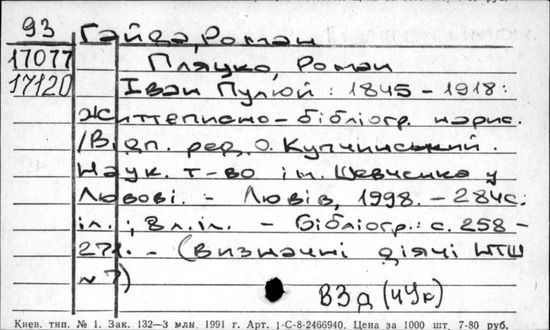 93 Гайда, Роман
17077 Пляцко, Роман
17120 Іван Пулюй : 1845 - 1918 :
Життєписно-бібліогр. нарис.
/Відп. ред. О. Купчинський.
Наук. т-во ім. Шевченка у
Львові. - Львів, 1998. - 284с:
іл.; 8 л. іл. - Бібліогр.: с. 258 -
271. - (Визначні діячі НТШ
№ 7)
В3д (4Ук)
Киев. тип. № 1. Зак. 132—3 млн. 1991 г. Арт. 1-С-8-2466940. Цена за 1000 шт. 7-80 руб.